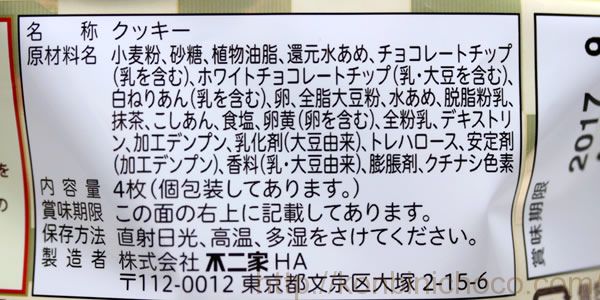 名称 クッキー
原材料名 小麦粉、砂糖、植物油脂、還元水あめ、チョコレートチップ
(乳を含む)、ホワイトチョコレートチップ(乳・大豆を含む)、
白ねりあん(乳を含む)、卵、全脂大豆粉、水あめ、脱脂粉乳、
抹茶、こしあん、食塩、卵黄(卵を含む)、全粉乳、デキストリ
ン、加工デンプン、乳化剤(大豆由来)、トレハロース、安定剤
(加工デンプン)、香料(乳・大豆由来)、膨脹剤、クチナシ色素
内容量 4枚(個包装してあります。)
賞味期限 この面の右上に記載してあります。
保存方法 直射日光、高温、多湿をさけてください。
製造者 株式会社 不二家 HA
〒112-0012 東京都文京区大塚 2-15-6
賞味期限
2017 9
を
の